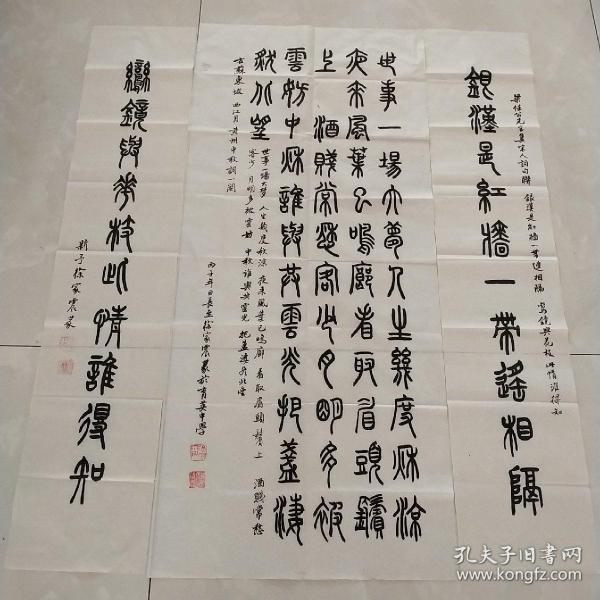 梁任公先生集宋人詞句聯 銀漢是紅牆一帶遙相隔 鸞鏡與花枝此情誰得知
銀漢是紅牆一帶遙相隔
世事一場大夢人生幾度秋涼
夜來風葉已鳴廊看取眉頭鬢
上酒賤常愁客少月明多被
雲妨中秋誰與共光把盞淒
然北望
世事一場大夢 人生幾度秋涼 夜來風葉已鳴廊 看取眉頭鬢上 酒賤常愁
客少 月明多被雲妨 中秋誰與共光 把盞淒然北望
右蘇東坡 西江月 黃州中秋詞一闋
丙子年日長至徐家震篆於育英中學
鸞鏡與花枝此情誰得知
徐家震篆
孔夫子旧书网
www.kongfz.com